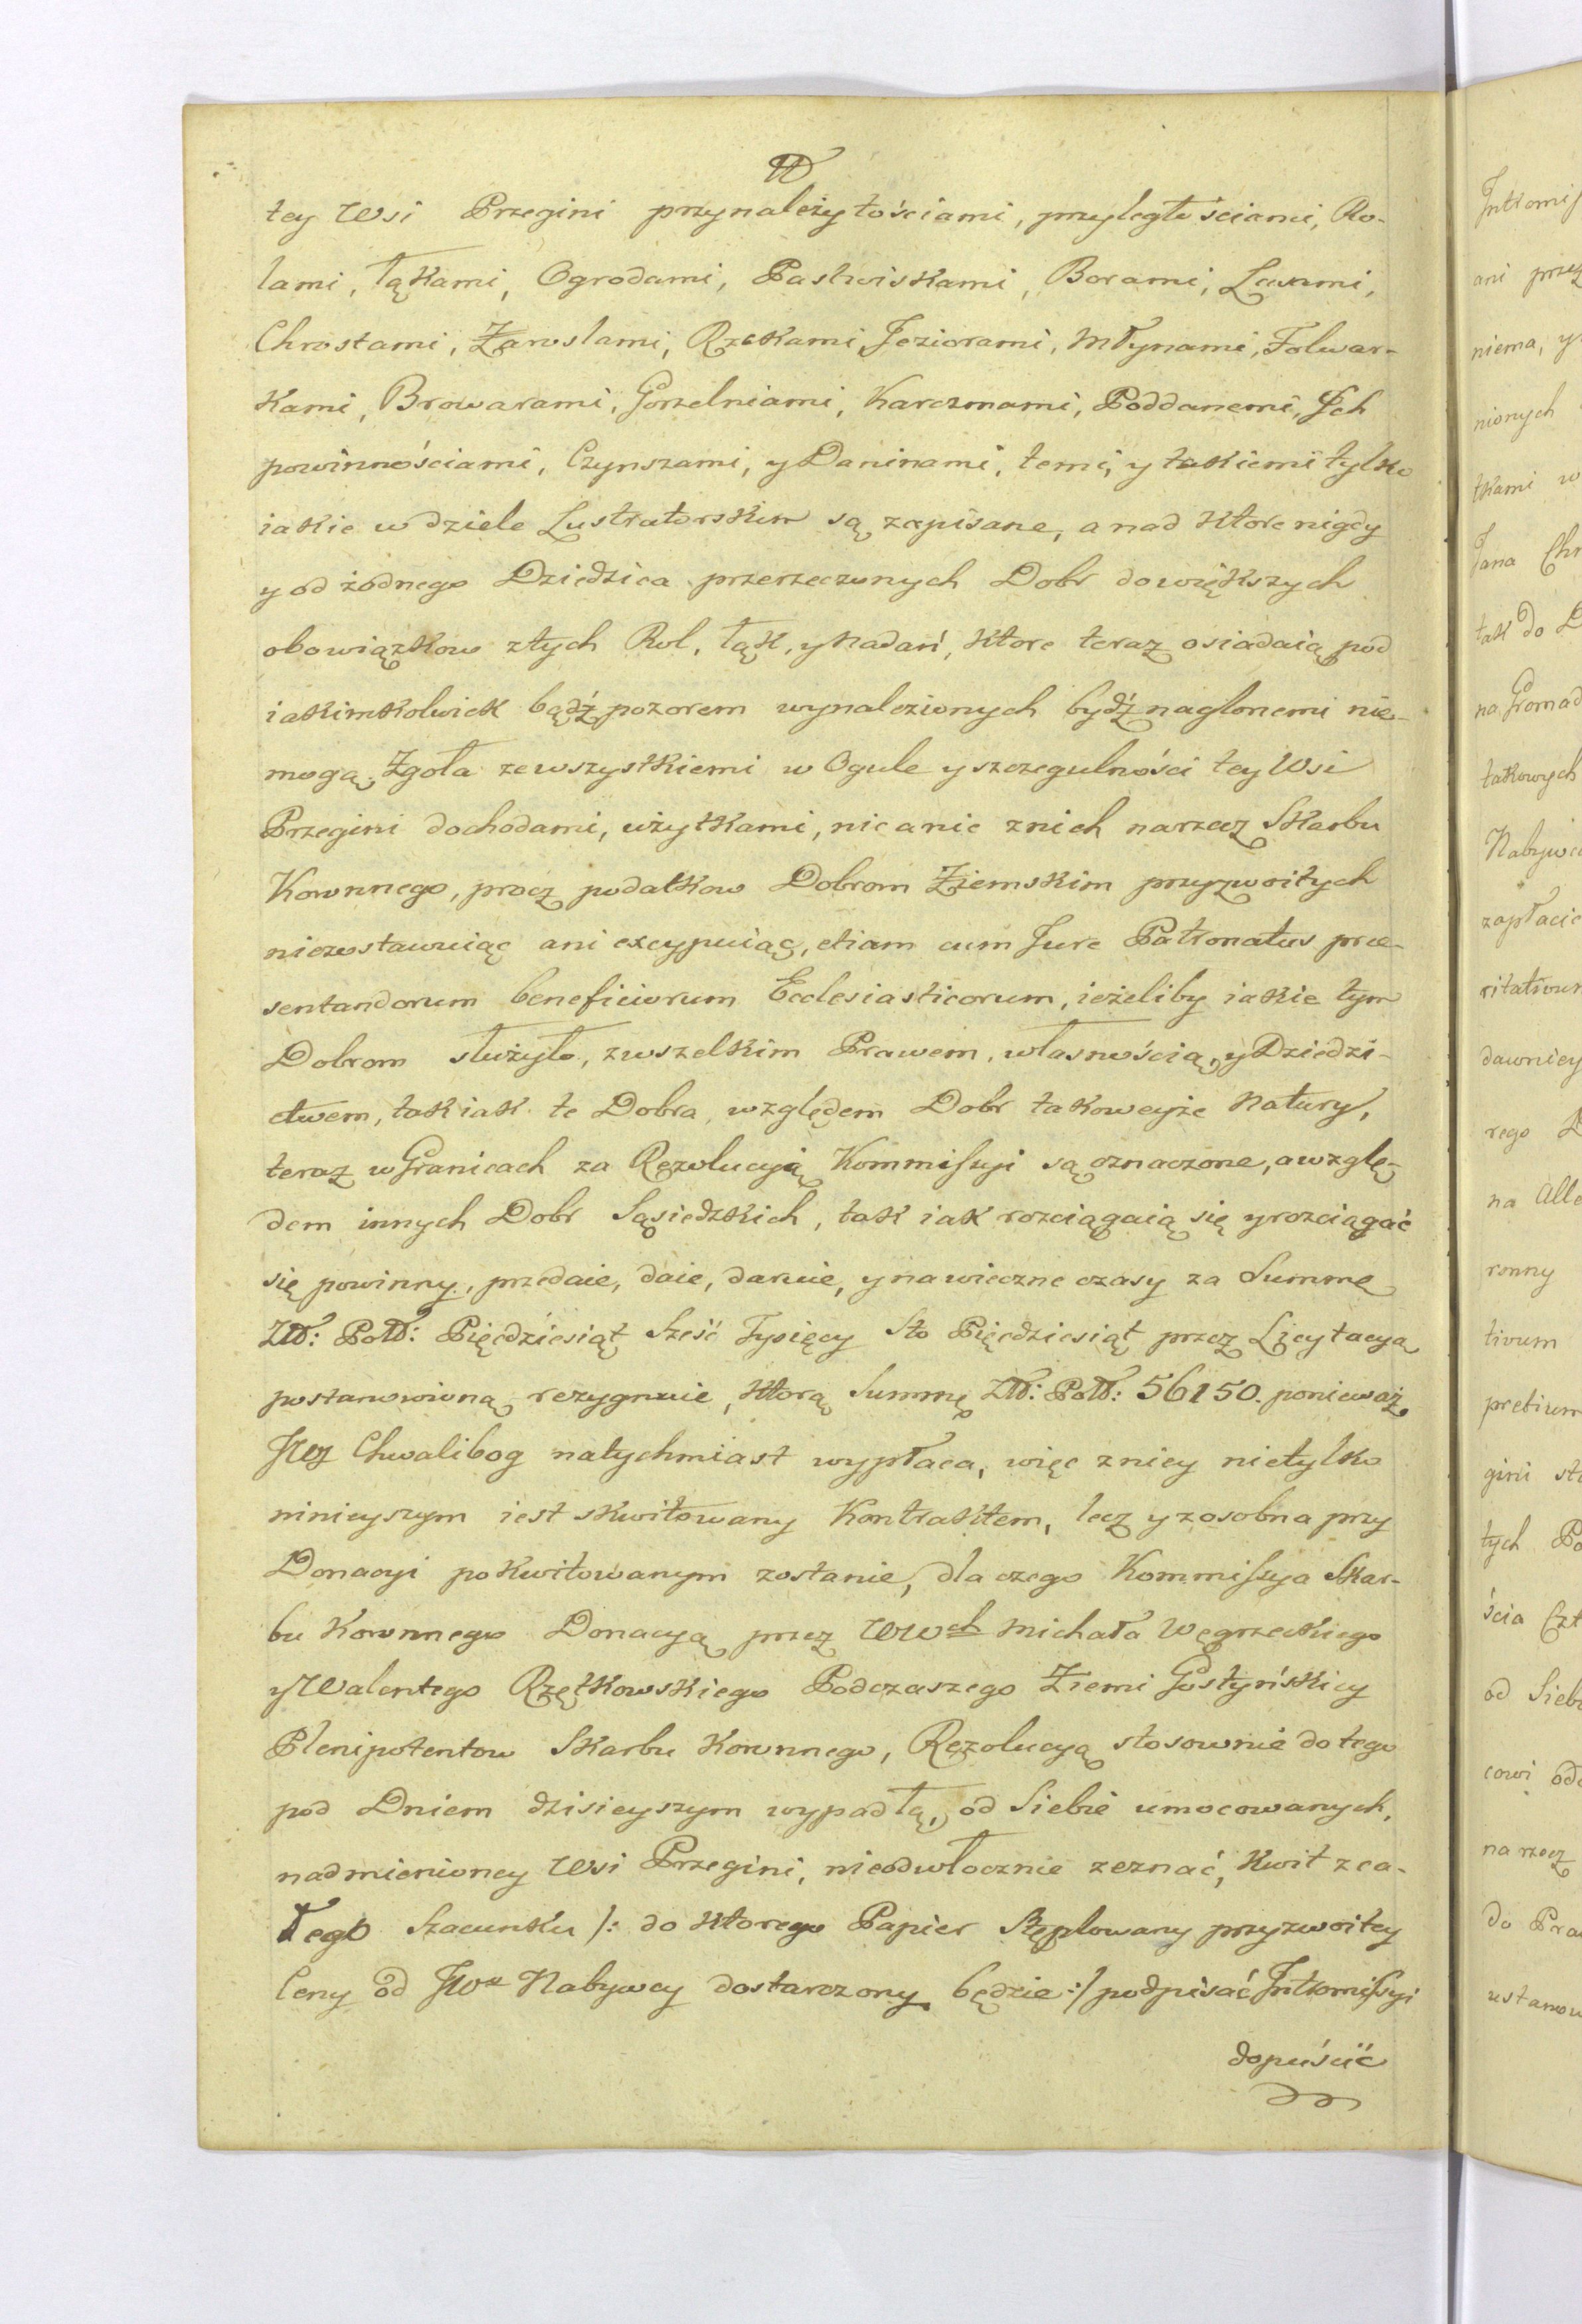 tey Wsi Przegini przynależytościami, przyległościami, Ro-
lami, łąkami, Ogrodami, Pastwiskami, Borami, Lasami,
Chrostami, Zaroslami, Rzekami, Jeziorami, Młynami, Folwar-
kami, Browarami, Gorzelniami, Karczmami, Poddanemi, Ich
powinnościami, Czynszami, y Daninami, temi, y takiemi tylko
iakie w dziele Lustratorskim są zapisane, a nad ktore nigdy
y od żadnego Dziedzica przerzeczonych Dobr do większych
obowiązkow z tych Rol, łąk, y nadań, ktore teraz osiadaią pod
iakimkolwiek bądź pozorem wynalezionych bydź naglonemi nie-
mogą. Zgoła ze wszystkiemi w Ogule y szczegulności tey Wsi
Przegini dochodami, użytkami, nic a nic z nich na rzecz Skarbu
Koronnego, procz podatkow Dobrom Ziemskim przyzwoitych
niezostawuiąc ani excypuiąc, etiam cum Jure Patronatus prae-
sentandorum beneficiorum Ecclesiasticorum, ieżeliby iakie tym
Dobrom służyło, z wszelkim Prawem, własnością, y Dziedzi-
ctwem, tak iak te Dobra, względem Dobr takoweyże Natury,
teraz w Granicach za Rezolucyią Kommissyi są oznaczone, a wzglę-
dem innych Dobr Sąsiedzkich, tak iak rozciągaią się y rozciągać
się powinny, przedaie, daie, daruie, y na wieczne czasy za Summę
Złł: Poll: Pięćdziesiąt Sześć Tysięcy Sto Pięćdziesiąt przez Licytacyą
postanowioną rezygnuie, ktorą Summę Złł: Poll: 56150. ponieważ
JWJ Chwalibog natychmiast wypłaca, więc z niey nietylko
ninieyszym iest skwitowany Kontraktem, lecz y z osobna przy
Donacyi pokwitowanym zostanie, dla czego Kommissya Skar-
bu Koronnego Donacyą przez WW<sup>ch</sup> Michała Węgrzeckiego
y Walentego Rzętkowskiego Podczaszego Ziemi Gostyńskiey
Plenipotentow Skarbu Koronnego, Rezolucyą stosownie do tego
pod Dniem dzisieyszym wypadłą, od Siebie umocowanych,
nadmienioney Wsi Przegini, nieodwłocznie zeznać, Kwit z ca-
łego Szacunku /: do ktorego Papier Stęplowany przyzwoitey
Ceny od JW Nabywcy dostarczony będzie :/ podpisać Intromissyi
dopuścić
ani przez
niema, y
nionych
tkami w
Jana Chr
tak do D
na Gromad
takowych
Nabywc
zapłacic
dawniey
rego D
na
ronny
tivum
pretium
gini
tych Po
ścia
od Sieb
cowi
na rzecz
do Pra
ustanow